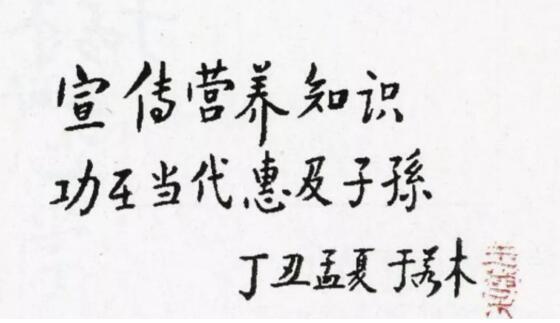 宣传营养知识
功在当代惠及子孫
丁丑孟夏 于若木